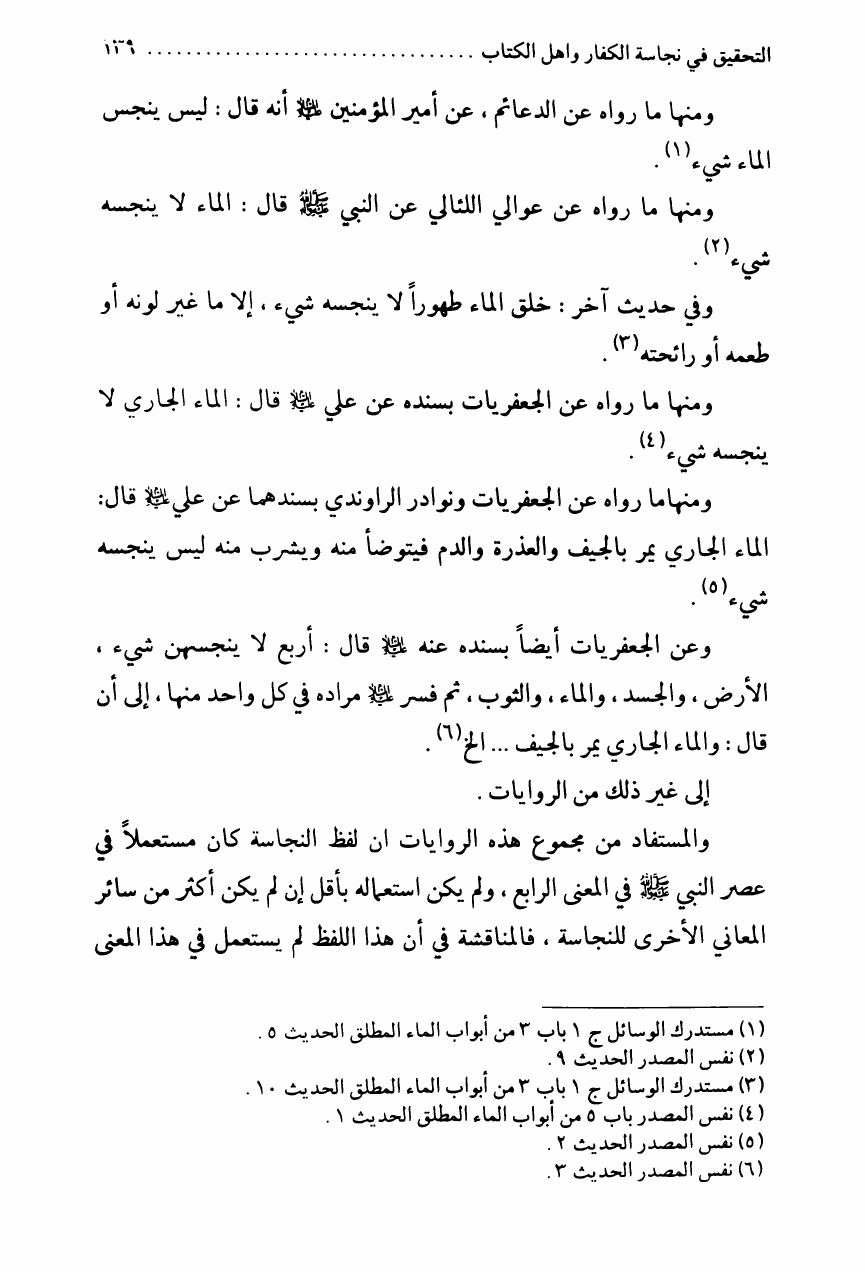 التحقيق في نجاسة الكفار واهل الكتاب ................................. ١٣٩
ومنها ما رواه عن الدعائم ، عن أمير المؤمنين عليه السلام أنه قال : ليس ينجس
الماء شيء(١) .
ومنها ما رواه عن عوالي اللئالي عن النبي ﷺ قال : الماء لا ينجسه
شيء(٢) .
وفي حديث آخر : خلق الماء طهوراً لا ينجسه شيء ، إلا ما غير لونه أو
طعمه أو رائحته(٣) .
ومنها ما رواه عن الجعفريات بسنده عن علي عليه السلام قال : الماء الجاري لا
ينجسه شيء(٤) .
ومنهاما رواه عن الجعفريات ونوادر الراوندي بسندهما عن علي عليه السلام قال:
الماء الجاري يمر بالجيف والعذرة والدم فيتوضأ منه ويشرب منه ليس ينجسه
شيء(٥) .
وعن الجعفريات أيضاً بسنده عنه عليه السلام قال : أربع لا ينجسهن شيء ،
الأرض ، والجسد ، والماء ، والثوب ، ثم فسر عليه السلام مراده في كل واحد منها ، إلى أن
قال : والماء الجاري يمر بالجيف ... الخ(٦) .
إلى غير ذلك من الروايات .
والمستفاد من مجموع هذه الروايات ان لفظ النجاسة كان مستعملاً في
عصر النبي ﷺ في المعنى الرابع ، ولم يكن استعماله بأقل إن لم يكن أكثر من سائر
المعاني الأخرى للنجاسة ، فالمناقشة في أن هذا اللفظ لم يستعمل في هذا المعنى
(١) مستدرك الوسائل ج ١ باب ٣ من أبواب الماء المطلق الحديث ٥ .
(٢) نفس المصدر الحديث ٩ .
(٣) مستدرك الوسائل ج ١ باب ٣ من أبواب الماء المطلق الحديث ١٠ .
(٤) نفس المصدر باب ٥ من أبواب الماء المطلق الحديث ١ .
(٥) نفس المصدر الحديث ٢ .
(٦) نفس المصدر الحديث ٣ .